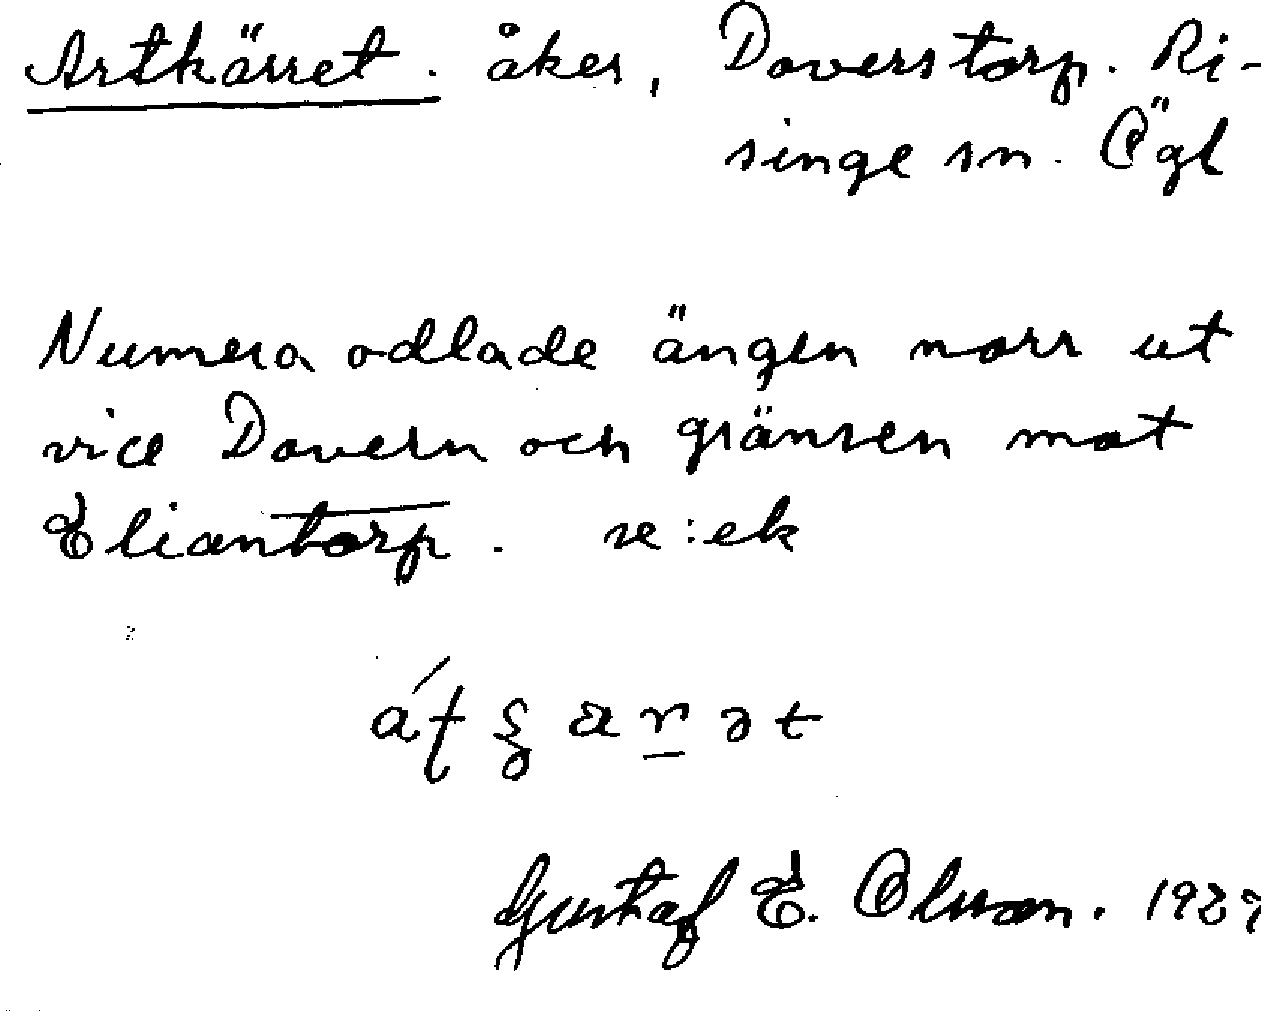 Artkärret. åker, Daverstorp. Ri-
singe sn. Ögl
Numera odlade ängen norr ut
vice Davern och gränsen mot
Eliantorp. se :ek
Gustaf E. Olsson. 1927